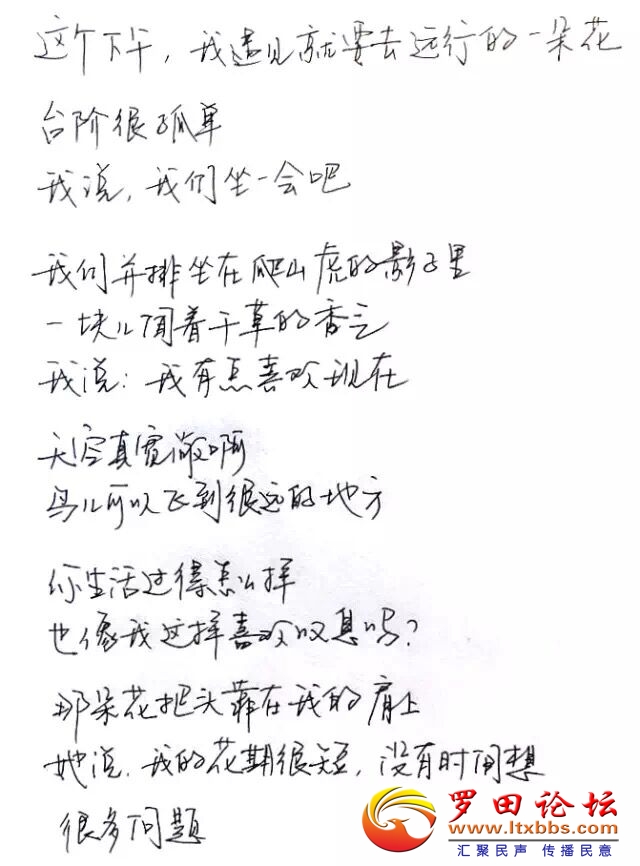 这个下午，我遇见就要去远行的一朵花
台阶很孤单
我说，我们坐一会吧
我们并排坐在爬山虎的影子里
一块儿闻着干草的香气
我说：我有点喜欢现在
天空真宽敞啊
鸟儿可以飞到很远的地方
你生活过得怎么样
也像我这样喜欢叹息吗？
那朵花把头靠在我的肩上
她说，我的花期很短，没有时间想
很多问题
罗田论坛
www.ltxbbs.com
汇聚民声 传播民意